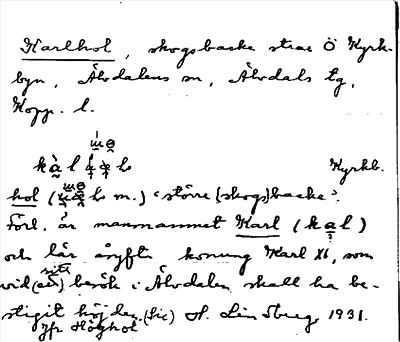 Karlhol, skogsbacke strax Ö Kyrk-
byn, Älvdalens sn, Älvdals tg,
Kopp. l.
Kyrkb.
hol m.) "större (skogs)backe".
Förl. är mansnamnet Karl
och lär åsyfta konung Karl XI, som
vid sitt besök i Älvdalen skall ha be-
stigit höjden. (Sic) H. Linsberg 1931.
Jfr Höghol